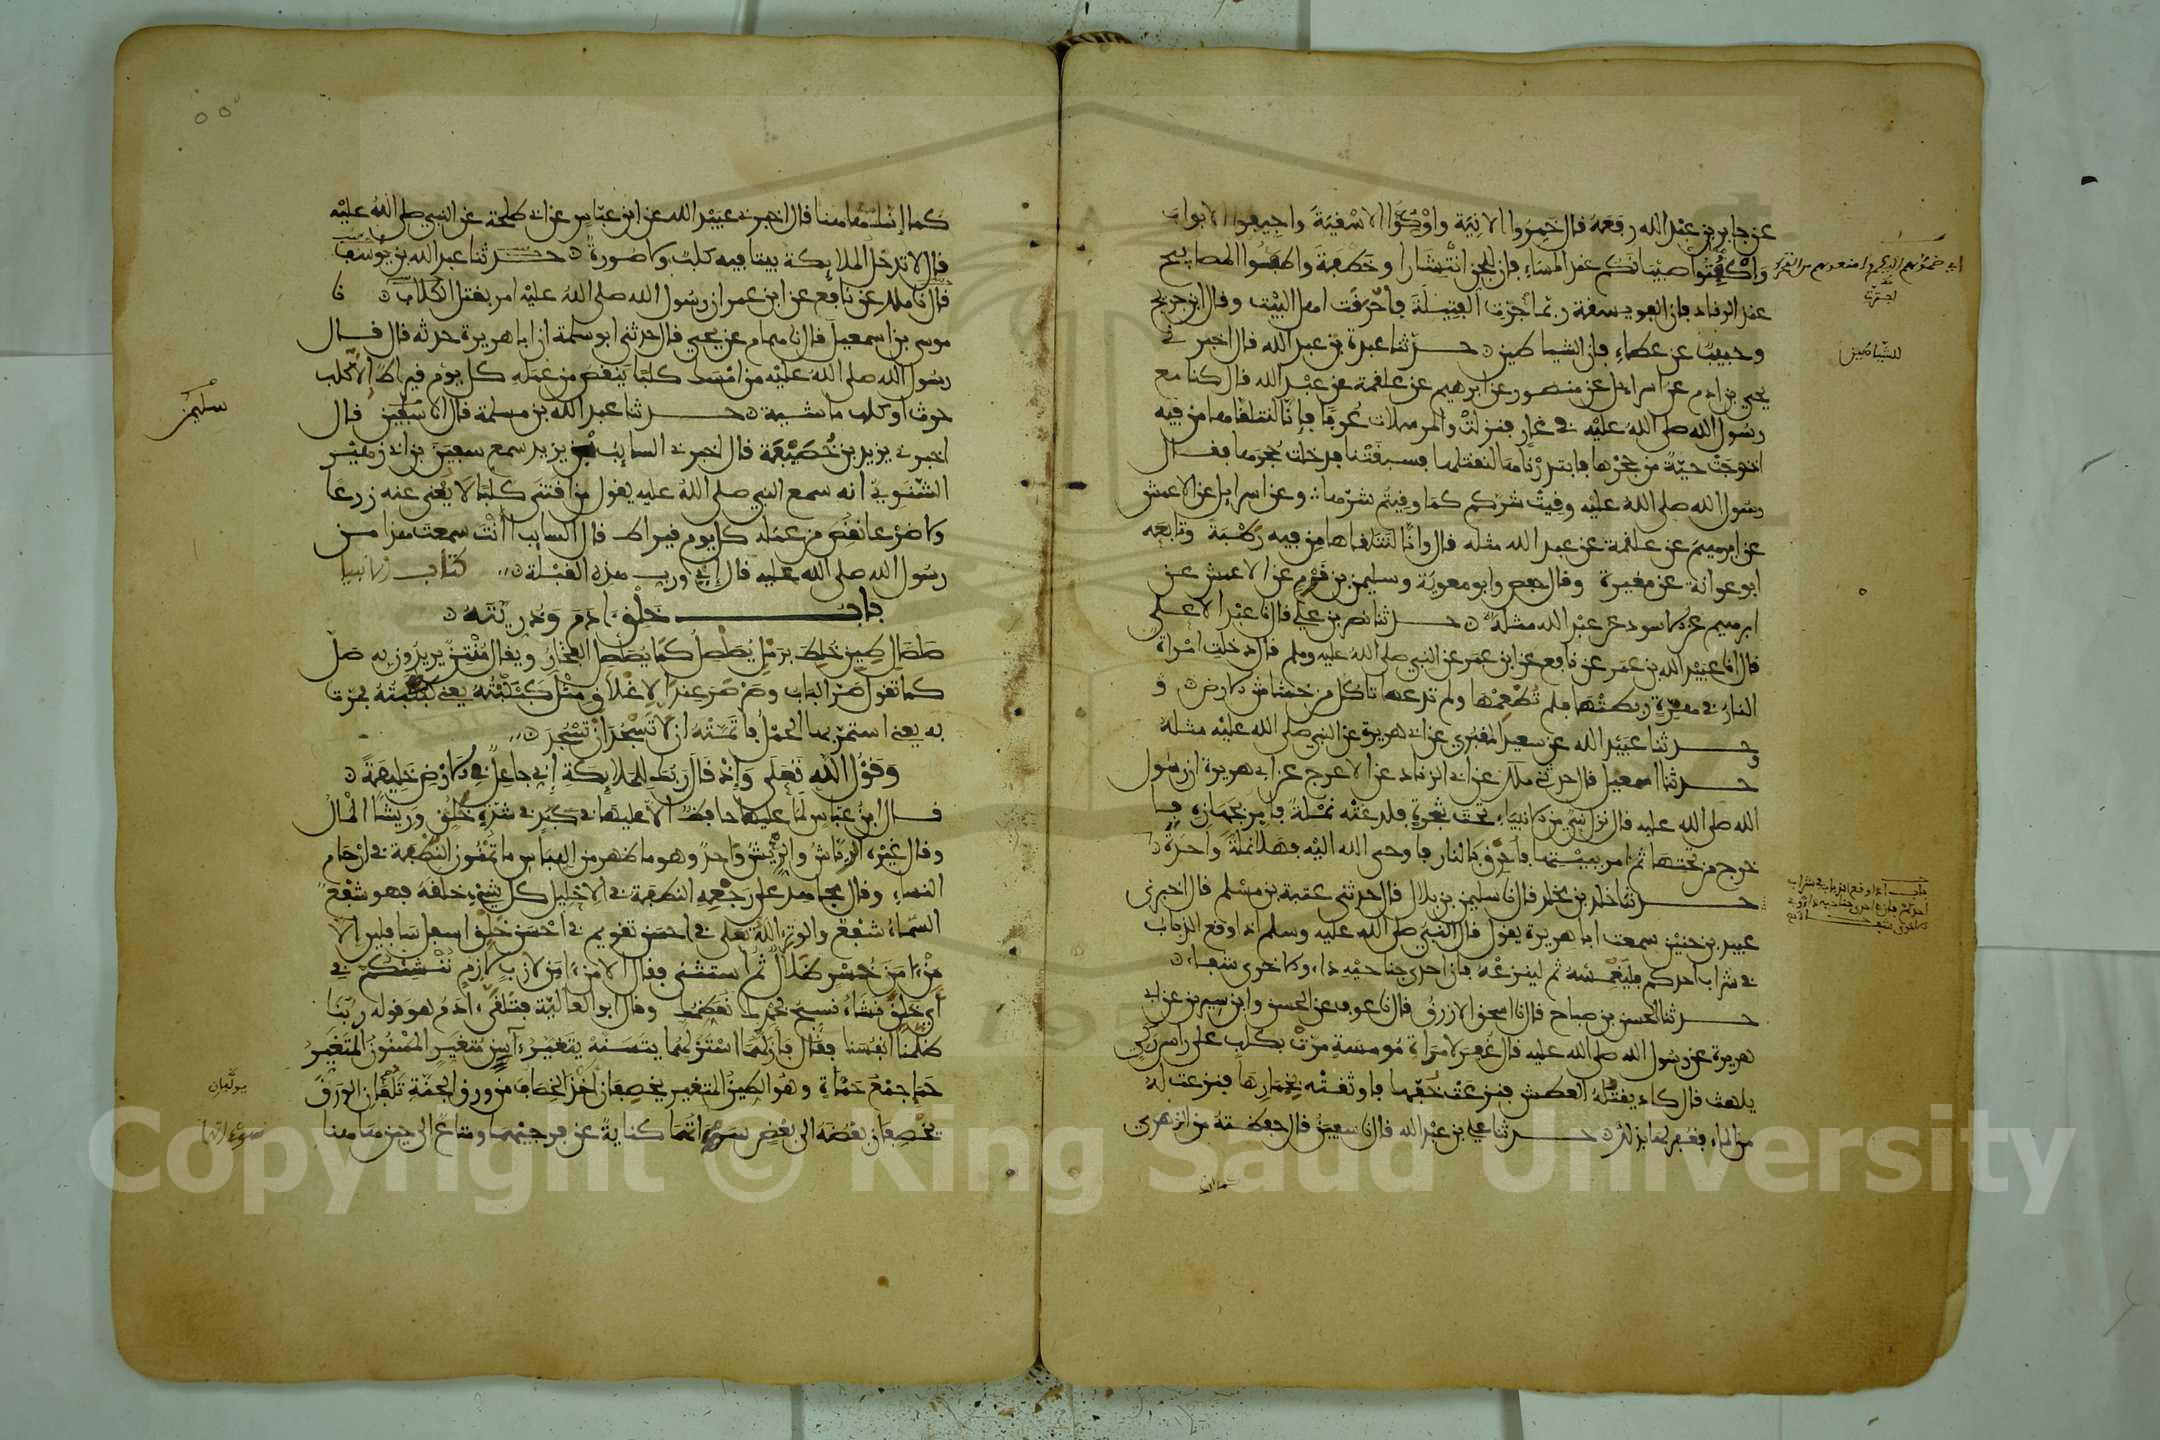 عن جابر بن عبد الله رفعه قال خمروا الانية واوكوا الاسقية واجيفوا الابواب
واكفتوا صبيانكم عند المساء فإن للجن انتشارا وخطفة واطفئوا المصابيح
عند الرقاد فإن الفويسقة ربما اجترت الفتيلة فأحرقت اهل البيت وقال ابن جريج
وحبيب عن عطاء فإن الشياطين حدثنا عبدة بن عبد الله قال اخبرني
يحيى بن ادم عن اسراءيل عن منصور عن ابرهيم عن علقمة عن عبد الله قال كنا مع
رسول الله صلى الله عليه في غار فنزلت والمرسلات عرفا فإنا لنتلقاها من فيه
اذ خرجت حية من جحرها فابتدرناها لنقتلها فسبقتنا فدخلت جحرها فقال
رسول الله صلى الله عليه وقيت شركم كما وقيتم شرها وعن اسراءيل عن الاعمش
عن ابرهيم عن علقمة عن عبد الله مثله قال وانا لنتلقاها من فيه رطبة وتابعه
ابو عوانة عن مغيرة وقال حفص وابو معوية وسليمن بن قرم عن الاعمش عن
ابرهيم عن الاسود عن عبد الله مثله حدثنا نصر بن علي قال نا عبد الاعلى
قال نا عبيد الله بن عمر عن نافع عن ابن عمر عن النبي صلى الله عليه وسلم قال دخلت امراة
النار في هرة ربطتها فلم تطعمها ولم تدعها تاكل من خشاش الارض و
حدثنا عبيد الله عن سعيد المقبري عن ابي هريرة عن النبي صلى الله عليه مثله
حدثنا اسمعيل قال حدثني ملك عن ابي الزناد عن الاعرج عن ابي هريرة ان رسول
الله صلى الله عليه قال نزل نبي من الانبياء تحت شجرة فلدغته نملة فامر بجهازه
خرج من تحتها ثم امر ببيتها فاحرق بالنار فاوحى الله اليه فهلا نملة واحدة
حدثنا خالد بن مخلد قال نا سليمن بن بلال قال حدثني عتبة بن مسلم قال اخبرني
عبيد بن حنين سمعت ابا هريرة يقول قال النبي صلى الله عليه وسلم اذا وقع الذباب
في شراب احدكم فليغمسه ثم لينزعه فإن احدى جناحيه داء والاخرى شفاء
حدثنا الحسن بن صباح قال نا اسحق الازرق قال نا عوف عن الحسن وابن سيرين عن ابي
هريرة عن رسول الله صلى الله عليه قال غفر لامراة مومسة مرت بكلب على راس ركي
يلهث قال كاد يقتله العطش فنزعت خفها فاوثقته بخمارها فنزعت له
من الماء فغفر لها بذلك حدثنا علي بن عبد الله قال نا سفين قال حفظته من الزهري
للشياطين
كما انك هاهنا قال اخبرني عبيد الله عن ابن عباس عن ابي طلحة عن النبي صلى الله عليه
قال لا تدخل الملايكة بيتا فيه كلب ولا صورة حدثنا عبد الله بن يوسف
قال نا ملك عن نافع عن ابن عمر ان رسول الله صلى الله عليه امر بقتل الكلاب نا
موسى بن اسمعيل قال نا همام عن يحيى قال حدثني ابو سلمة ان ابا هريرة حدثه قال قال
رسول الله صلى الله عليه من امسك كلبا ينقص من عمله كل يوم قيراط الا كلب
حرث او كلب ماشية حدثنا عبد الله بن مسلمة قال نا سفين قال
اخبرني يزيد بن خصيفة قال اخبرني السايب بن يزيد سمع سفين بن ابي زهير
الشنوي انه سمع النبي صلى الله عليه يقول من اقتنى كلبا لا يغني عنه زرعا
ولا ضرعا نقص من عمله كل يوم قيراط قال السايب أانت سمعت هذا من
رسول الله صلى الله عليه قال إي ورب هذه القبلة كتاب الانبيا
باب خلق ادم وذريته
صلصال طين خلط برمل يصلصل كما يصلصل الفخار ويقال منتن يريدون به صل
كما تقول صر الباب وصرصر عند الاغلاق مثل كبكبته يعني كببته فمرت
به يعني استمر بها الحمل فاتمته ان لا تسجد ان تسجد
وقول الله تعلى وإذ قال ربك للملايكة إني جاعل في الارض خليفة
قال ابن عباس لما عليها حافظ الا عليها في كبد في شدة خلق وريشا المال
وقال غيره الرياش والريش واحد وهو ما ظهر من اللباس ما تمنون النطفة في ارحام
النساء وقال مجاهد على رجعه النطفة في الاحليل كل شيء خلقه فهو شفع
السماء شفع والوتر الله تعلى في احسن تقويم في احسن خلق اسفل سافلين الا
من ءامن خسر ضلال ثم استثنى فقال الا من ءامن لازب لازم ننشئكم في
أي خلق نشاء نسبح بحمدك نعظمك وقال ابو العالية فتلقى ءادم هو قوله ربنا
ظلمنا انفسنا وقال فازلهما استزلهما يتسنه يتغير ءاسن متغير المسنون المتغير
حما جمع حمأة وهو الطين المتغير يخصفان اخذا الخصاف من ورق الجنة تلفان الورق
تخصفان بعضه الى بعض سوءاتهما كناية عن فرجيهما ومتاع الى حين هاهنا
سليمن
يولفان
Copyright © King Saud University